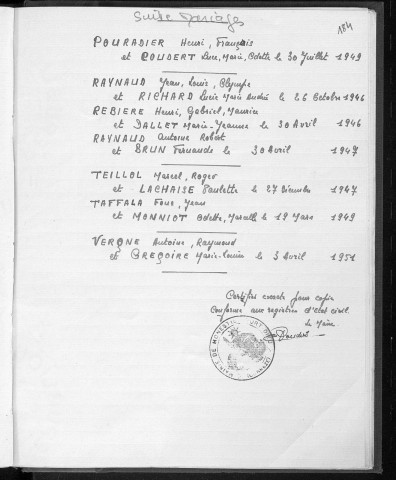 Suite Mariages
184
POURADIER Henri, François
et COUDERT Luce, Marie, Odette le 30 Juillet 1949
RAYNAUD Jean, Louis, Olympe
et RICHARD Lucie Marie Andrée le 26 Octobre 1946
REBIERE Henri, Gabriel, Maurice
et DALLET Marie-Jeanne le 30 Avril 1946
RAYNAUD Antoine Robert
et BRUN Fernande le 30 Avril 1947
TEILLOL Marcel, Roger
et LACHAISE Paulette le 27 Décembre 1947
TAFFALA Jean
et MONNIOT Odette, le 19 Mars 1949
VERGNE Antoine, Raymond
et GREGOIRE Marie-Louise le 3 Avril 1951
Certifiée exacte pour copie
conforme aux registres d'état civil.
Le Maire
MAIRIE DE